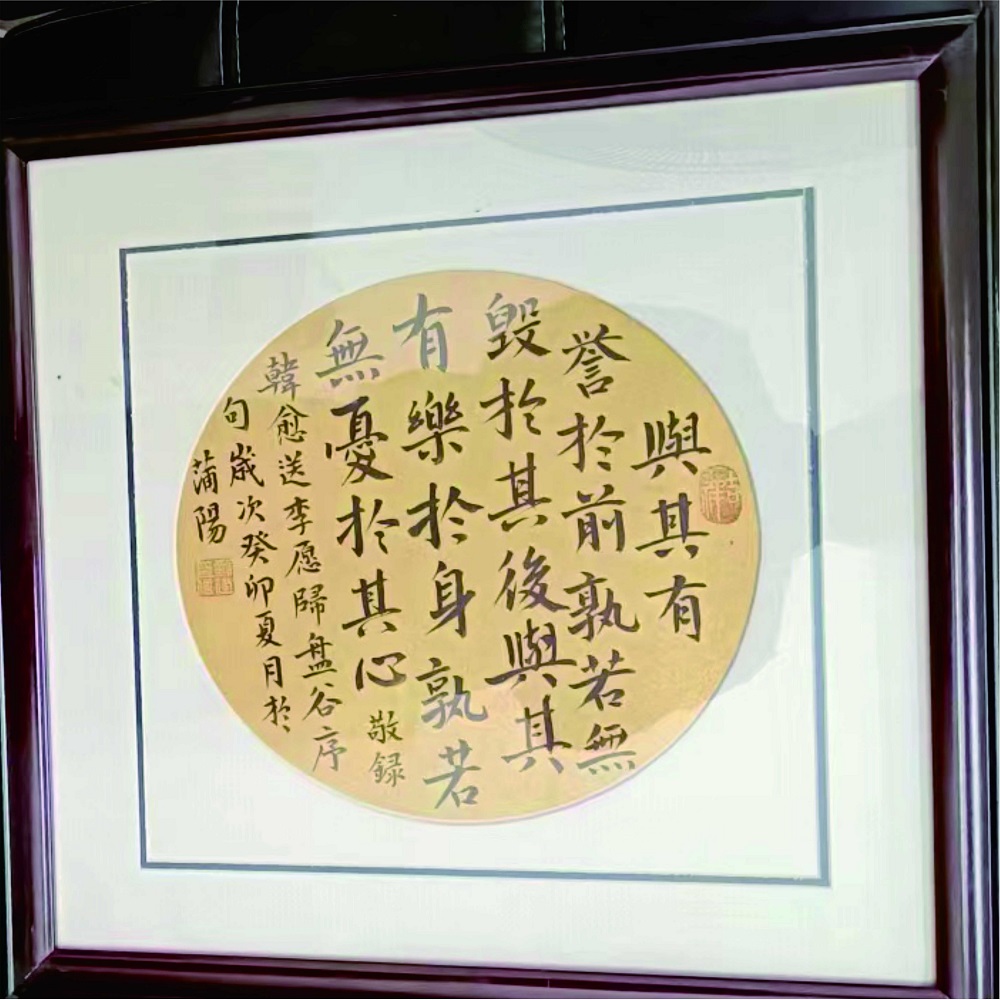 與其有
譽於前孰若無
毀於其後與其
有樂於身孰若
無憂於其心敬録
韓愈送李愿歸盤谷序
句歲次癸卯夏月於
蒲陽